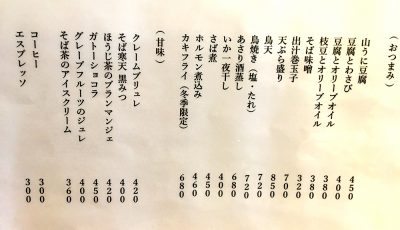 （おつまみ）
山うに豆腐 450
豆腐とわさび 400
豆腐とオリーブオイル 380
枝豆とオリーブオイル 380
そば味噌 320
出汁巻玉子 700
天ぷら盛り 850
鳥天 750
鳥焼き（塩・たれ） 720
あさり酒蒸し 680
いか一夜干し 400
さば煮 450
ホルモン煮込み 460
カキフライ（冬季限定） 680
（甘味）
クレームブリュレ 420
そば寒天 黒みつ 400
ほうじ茶のブランマンジェ 420
ガトーショコラ 450
グレープフルーツのジュレ 400
そば茶のアイスクリーム 360
コーヒー 300
エスプレッソ 300